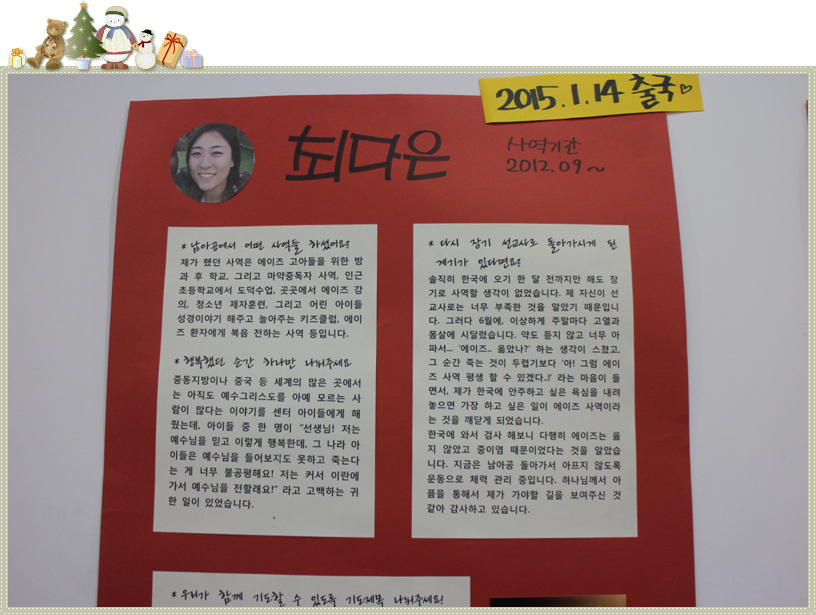 2015.1.14 출국♡
최다은
사역기간
2012.09~
* 남아공에서 어떤 사역들 하셨어요?
제가 했던 사역은 에이즈 고아들을 위한 방
과 후 학교, 그리고 마약중독자 사역, 인근
초등학교에서 도덕수업, 곳곳에서 에이즈 강
의, 청소년 제자훈련, 그리고 어린 아이들
성경이야기 해주고 놀아주는 키즈클럽, 에이
즈 환자에게 복음 전하는 사역 등입니다.
* 행복했던 순간 하나만 나눠주세요
중동지방이나 중국 등 세계의 많은 곳에서
는 아직도 예수그리스도를 아예 모르는 사
람이 많다는 이야기를 센터 아이들에게 해
줬는데, 아이들 중 한 명이 "선생님! 저는
예수님을 믿고 이렇게 행복한데, 그 나라 아
이들은 예수님을 들어보지도 못하고 죽는다
는 게 너무 불공평해요! 저는 커서 이란에
가서 예수님을 전할래요!" 라고 고백하는 귀
한 일이 있었습니다.
* 다시 장기 선교사로 돌아가시게 된
계기가 있다면요?
솔직히 한국에 오기 한 달 전까지만 해도 장
기로 사역할 생각이 없었습니다. 제 자신이 선
교사로는 너무 부족한 것을 알았기 때문입니
다. 그러다 6월에, 이상하게 주말마다 고열과
몸살에 시달렸습니다. 약도 듣지 않고 너무 아
파서... '에이즈.. 옮았나?' 하는 생각이 스쳤고,
그 순간 죽는 것이 두렵기보다 '아! 그럼 에이
즈 사역 평생 할 수 있겠다..!' 라는 마음이 들
면서, 제가 한국에 안주하고 싶은 욕심을 내려
놓으면 가장 하고 싶은 일이 에이즈 사역이라
는 것을 깨닫게 되었습니다.
한국에 와서 검사 해보니 다행히 에이즈는 옮
지 않았고 중이염 때문이었다는 것을 알았습니
다. 지금은 남아공 돌아가서 아프지 않도록
운동으로 체력 관리 중입니다. 하나님께서 아
픔을 통해서 제가 가야할 길을 보여주신 것
같아 감사하고 있습니다.
* 우리가 함께 기도할 수 있도록 기도제목 나눠주세요!